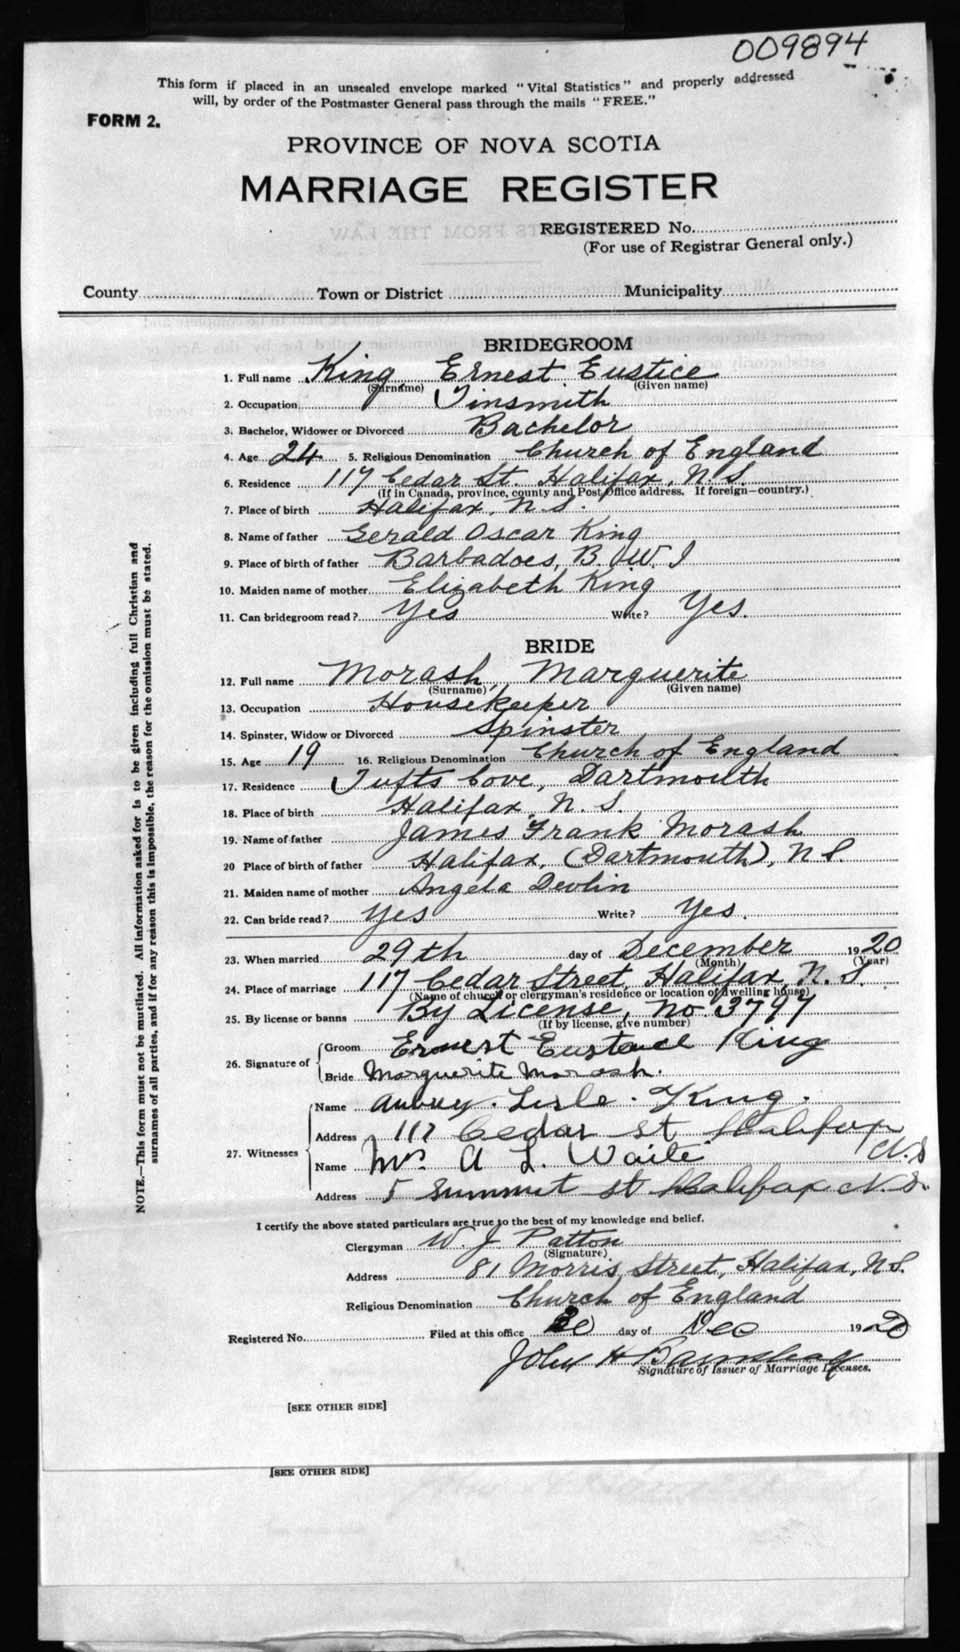 009894
This form if placed in an unsealed envelope marked "Vital Statistics" and properly addressed
will, by order of the Postmaster General pass through the mails "FREE."
FORM 2.
PROVINCE OF NOVA SCOTIA
MARRIAGE REGISTER
REGISTERED No.
(For use of Registrar General only.)
County Town or District Municipality
BRIDEGROOM
1. Full name King Ernest Eustice
(Surname) (Given name)
2. Occupation Tinsmith
3. Bachelor, Widower or Divorced Bachelor
4. Age 24 5. Religious Denomination Church of England
6. Residence 117 Cedar St. Halifax, N.S.
(If in Canada, province, county and Post Office address. If foreign—country.)
7. Place of birth Halifax, N.S.
8. Name of father Gerald Oscar King
9. Place of birth of father Barbadoes, B.W.I
10. Maiden name of mother Elizabeth King
11. Can bridegroom read? Yes Write? Yes.
BRIDE
12. Full name Morash, Marguerite
(Surname) (Given name)
13. Occupation Housekeeper
14. Spinster, Widow or Divorced Spinster
15. Age 19 16. Religious Denomination Church of England
17. Residence Tufts Cove, Dartmouth
18. Place of birth Halifax, N.S.
19. Name of father James Frank Morash
20 Place of birth of father Halifax, (Dartmouth), N.S.
21. Maiden name of mother Angela Devlin
22. Can bride read? Yes Write? Yes.
23. When married 29th day of December 1920
(Month) (Year)
24. Place of marriage 117 Cedar Street, Halifax, N.S.
(Name of church or clergyman's residence or location of dwelling house)
25. By license or banns By License, No 3797
(If by license, give number)
26. Signature of Groom Ernest Eustace King
Bride Marguerite Morash.
27. Witnesses Name Aubrey Lisle King.
Address 117 Cedar St Halifax N.S
Name Mrs A L. Waite
Address 5 Summit St Halifax N.S.
I certify the above stated particulars are true to the best of my knowledge and belief.
Clergyman W. J. Patton
(Signature)
Address 81 Morris Street, Halifax, N.S.
Religious Denomination Church of England
Registered No. Filed at this office 30 day of Dec 1920
John H
Signature of Issuer of Marriage Licenses.
[SEE OTHER SIDE]
[SEE OTHER SIDE]
NOTE.—This form must not be mutilated. All information asked for is to be given including full Christian and
surnames of all parties, and if for any reason this is impossible, the reason for the omission must be stated.